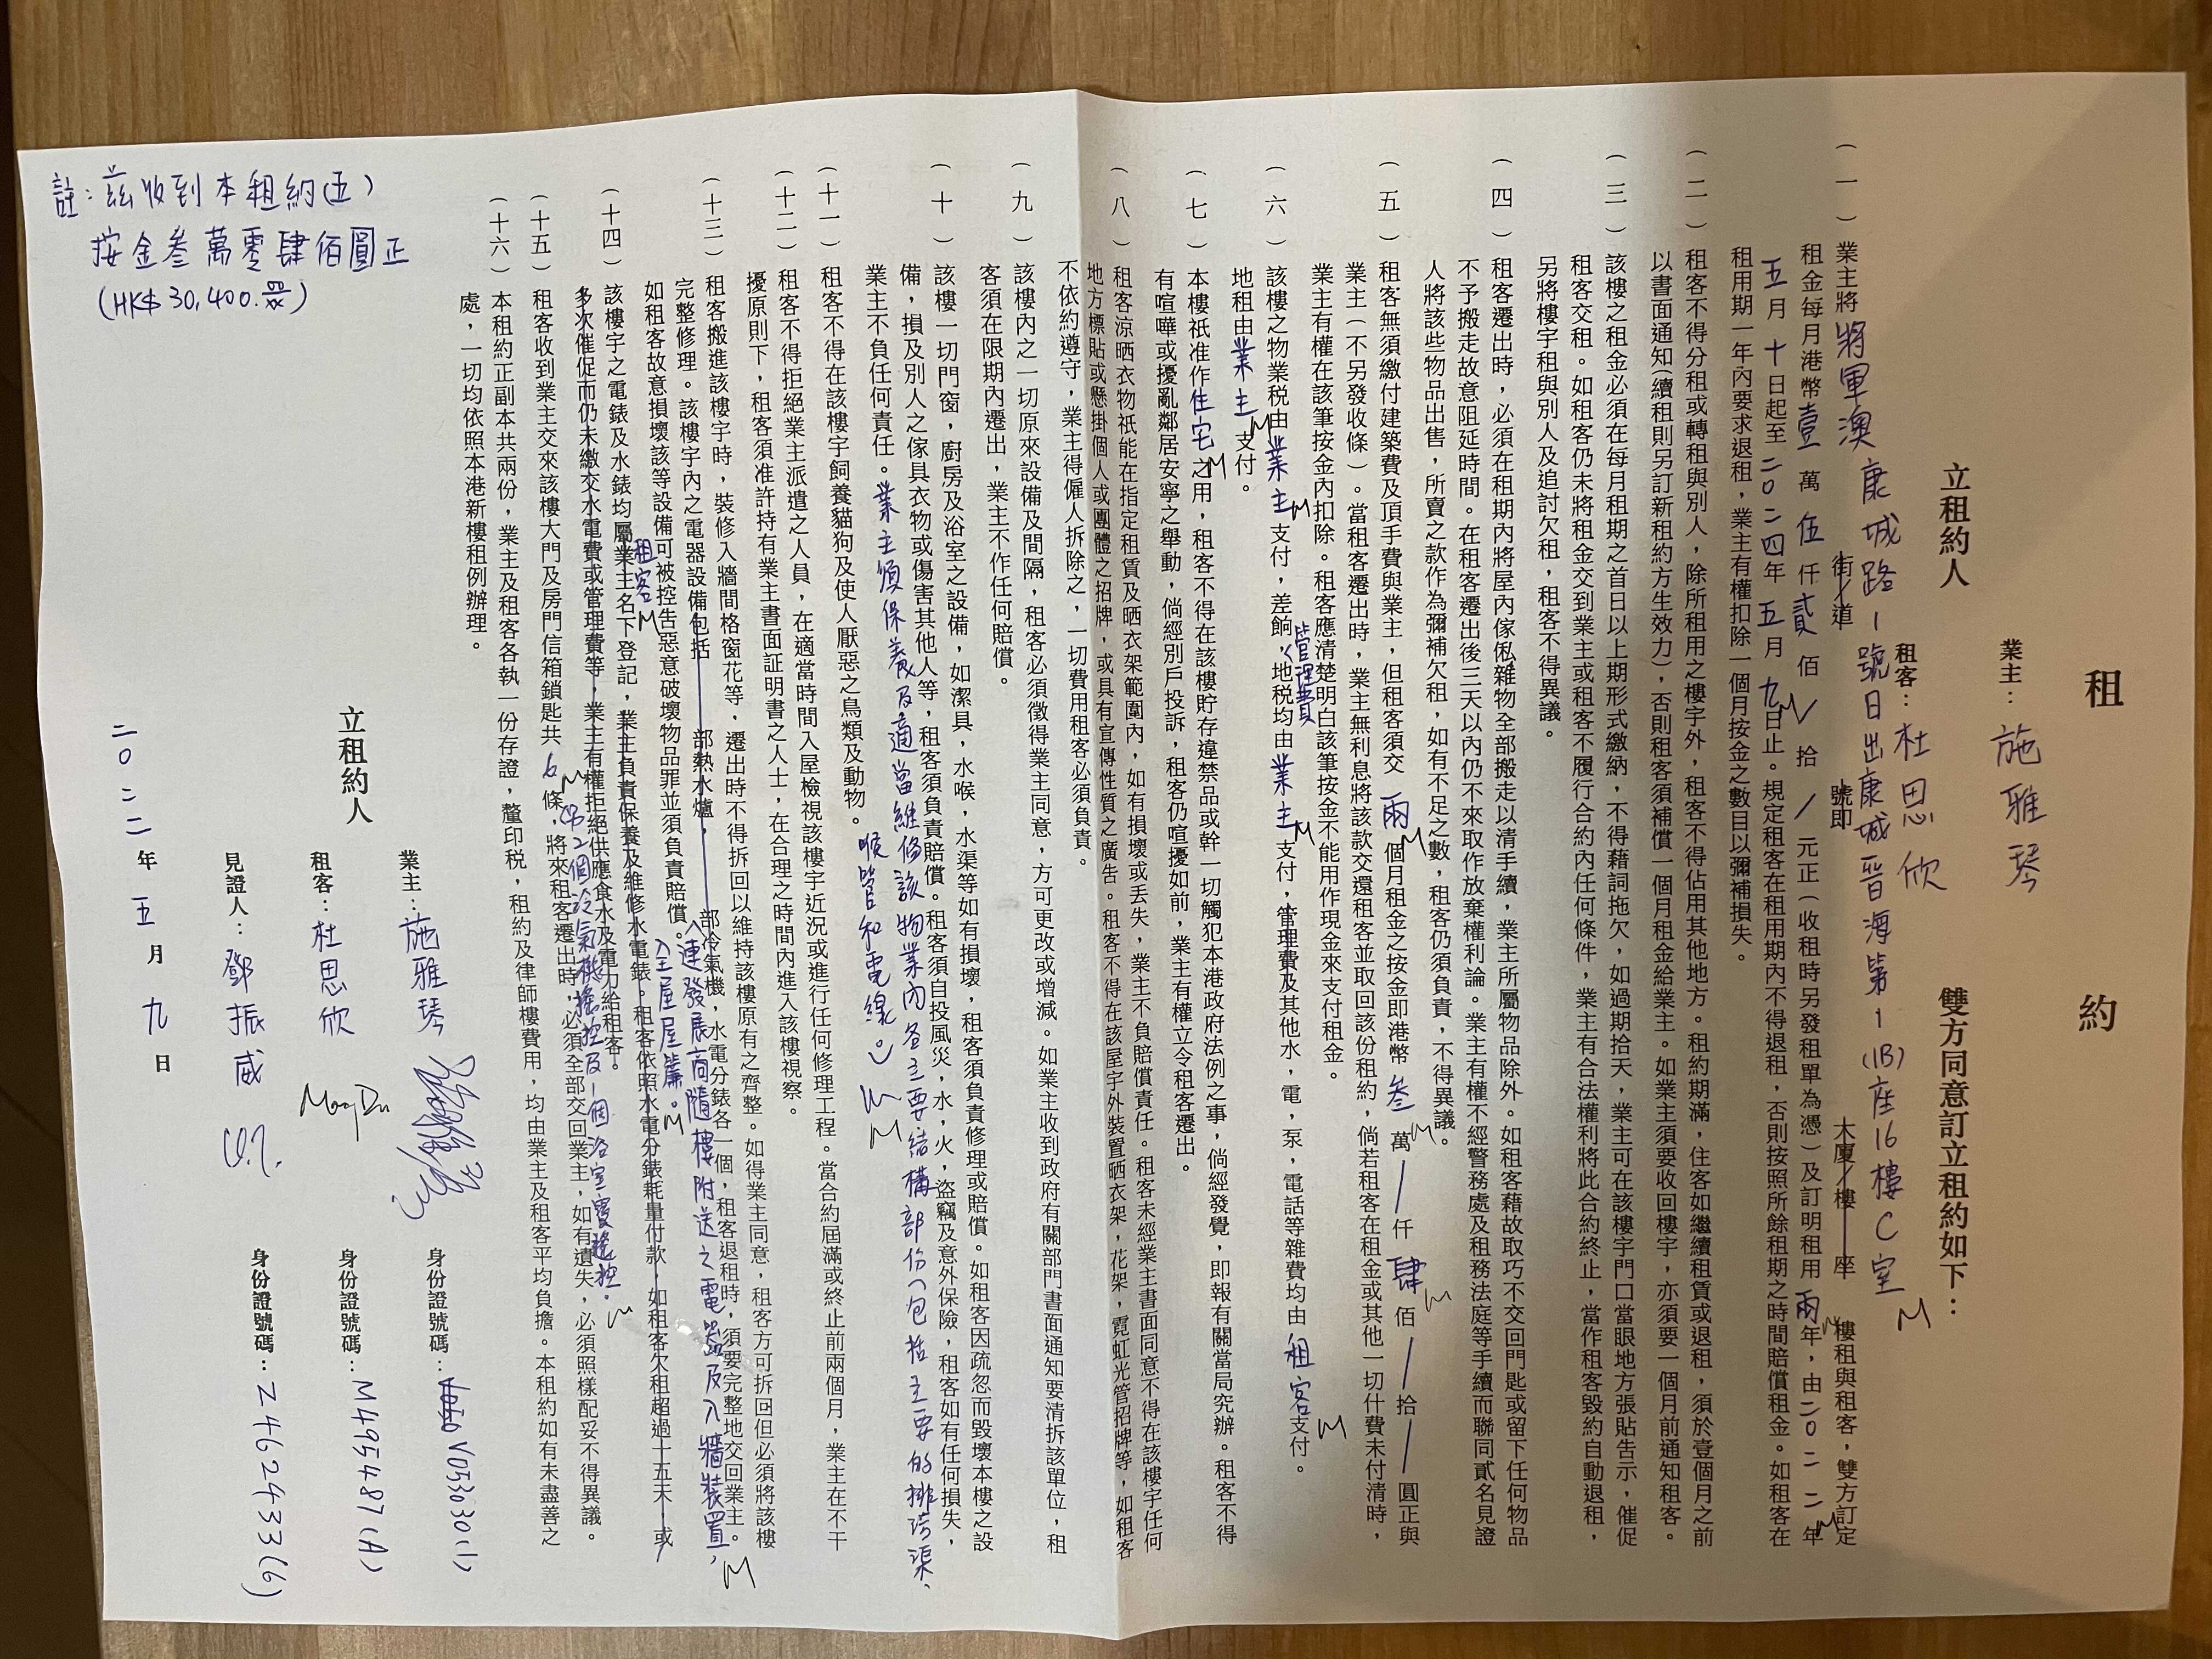 租約
立租約人
業主：施雅琴
租客：杜思欣
雙方同意訂立租約如下：
（一）業主將將軍澳康城路1號日出康城晉海第1(1B)座16樓C室
街道 號即 大廈 樓 座 樓租與租客，雙方訂定
租金每月港幣壹萬伍仟貳佰/拾/元正（收租時另發租單為憑）及訂明租用兩年，由二〇二二年
五月十日起至二〇二四年五月九日止。規定租客在租用期內不得退租，否則按照所餘租期之時間賠償租金。如租客在
租用期一年內要求退租，業主有權扣除一個月按金之數目以彌補損失。
（二）租客不得分租或轉租與別人，除所租用之樓宇外，租客不得佔用其他地方。租約期滿，住客如繼續租賃或退租，須於壹個月之前
以書面通知（續租則另訂新租約方生效力），否則租客須補償一個月租金給業主。如業主須要收回樓宇，亦須要一個月前通知租客。
（三）該樓之租金必須在每月租期之首日以上期形式繳納，不得藉詞拖欠，如過期拾天，業主可在該樓宇門口當眼地方張貼告示，催促
租客交租。如租客仍未將租金交到業主或租客不履行合約內任何條件，業主有合法權利將此合約終止，當作租客毀約自動退租，
另將樓宇租與別人及追討欠租，租客不得異議。
（四）租客遷出時，必須在租期內將屋內傢俬雜物全部搬走以清手續，業主所屬物品除外。如租客藉故取巧不交回門匙或留下任何物品
不予搬走故意阻延時間。在租客遷出後三天以內仍不來取作放棄權利論。業主有權不經警務處及租務法庭等手續而聯同貳名見證
人將該些物品出售，所賣之款作為彌補欠租，如有不足之數，租客仍須負責，不得異議。
（五）租客無須繳付建築費及頂手費與業主，但租客須交兩個月租金之按金即港幣叁萬/仟肆佰/拾/圓正與
業主（不另發收條）。當租客遷出時，業主無利息將該款交還租客並取回該份租約，倘若租客在租金或其他一切什費未付清時，
業主有權在該筆按金內扣除。租客應清楚明白該筆按金不能用作現金來支付租金。
（六）該樓之物業稅由業主支付，差餉、管理費地稅均由業主支付，管理費及其他水，電，泵，電話等雜費均由租客支付。
地租由業主支付。
（七）本樓祇准作住宅之用，租客不得在該樓貯存違禁品或幹一切觸犯本港政府法例之事，倘經發覺，即報有關當局究辦。租客不得
有喧嘩或擾亂鄰居安寧之舉動，倘經別戶投訴，租客仍喧擾如前，業主有權立令租客遷出。
（八）租客涼晒衣物祇能在指定租賃及晒衣架範圍內，如有損壞或丟失，業主不負賠償責任。租客未經業主書面同意不得在該樓宇任何
地方標貼或懸掛個人或團體之招牌，或具有宣傳性質之廣告。租客不得在該屋宇外裝置晒衣架，花架，霓虹光管招牌等，如租客
不依約遵守，業主得僱人拆除之，一切費用租客必須負責。
（九）該樓內之一切原來設備及間隔，租客必須徵得業主同意，方可更改或增減。如業主收到政府有關部門書面通知要清拆該單位，租
客須在限期內遷出，業主不作任何賠償。
（十）該樓一切門窗，廚房及浴室之設備，如潔具，水喉，水渠等如有損壞，租客須負責修理或賠償。如租客因疏忽而毀壞本樓之設
備，損及別人之傢具衣物或傷害其他人等，租客須負責賠償。租客須自投風災，水，火，盜竊及意外保險，租客如有任何損失，
業主不負任何責任。業主須保養及適當維修該物業內各主要結構部份（包括主要的排污渠、
喉管和電線。）
（十一）租客不得在該樓宇飼養貓狗及使人厭惡之鳥類及動物。
（十二）租客不得拒絕業主派遣之人員，在適當時間入屋檢視該樓宇近況或進行任何修理工程。當合約屆滿或終止前兩個月，業主在不干
擾原則下，租客須准許持有業主書面証明書之人士，在合理之時間內進入該樓視察。
（十三）租客搬進該樓宇時，裝修入牆間格窗花等，遷出時不得拆回以維持該樓原有之齊整。如得業主同意，租客方可拆回但必須將該樓
完整修理。該樓宇內之電器設備包括 部熱水爐， 部冷氣機，水電分錶各一個，租客退租時，須要完整地交回業主。
連發展商隨樓附送之電器及入牆裝置，
全屋屋簾。
如租客故意損壞該等設備可被控告惡意破壞物品罪並須負責賠償。
（十四）該樓宇之電錶及水錶均屬業主名下登記，業主負責保養及維修水電錶。租客依照水電分錶耗量付款，如租客欠租超過十五天，或
租客
多次催促而仍未繳交水電費或管理費等，業主有權拒絕供應食水及電力給租客。
（十五）租客收到業主交來該樓大門及房門信箱鎖匙共6條，將來租客遷出時，必須全部交回業主，如有遺失，必須照樣配妥不得異議。
2個冷氣機搖控及1個浴室寶搖控。
（十六）本租約正副本共兩份，業主及租客各執一份存證，釐印稅，租約及律師樓費用，均由業主及租客平均負擔。本租約如有未盡善之
處，一切均依照本港新樓租例辦理。
立租約人
業主：施雅琴 身份證號碼：V053030(1)
租客：杜思欣 身份證號碼：M495487(A)
見證人：鄧振威 身份證號碼：Z462433(6)
二〇二二年五月九日
註：茲收到本租約(五)
按金叁萬零肆佰圓正
(HK$30,400.00)